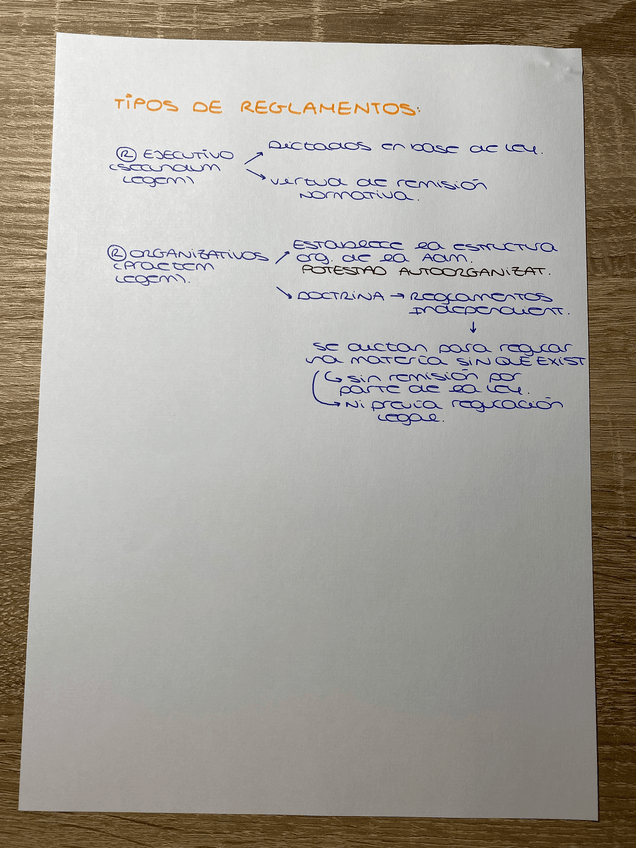 TIPOS DE REGLAMENTOS:
Ⓡ EJECUTIVO
(secundum
legem)
→ Dictados en base de ley.
→ virtud de remisión
normativa.
Ⓡ ORGANIZATIVOS
(praetem
legem).
→ ESTABLECE la estructura
org. de la Adm.
POTESTAD AUTOORGANIZAT.
→ DOCTRINA → REGLAMENTOS
INDEPENDIENT.
↓
se dictan para regular
una materia SIN QUE EXIST
↳ sin remisión por
parte de la ley.
↳ Ni previa regulación
legal.